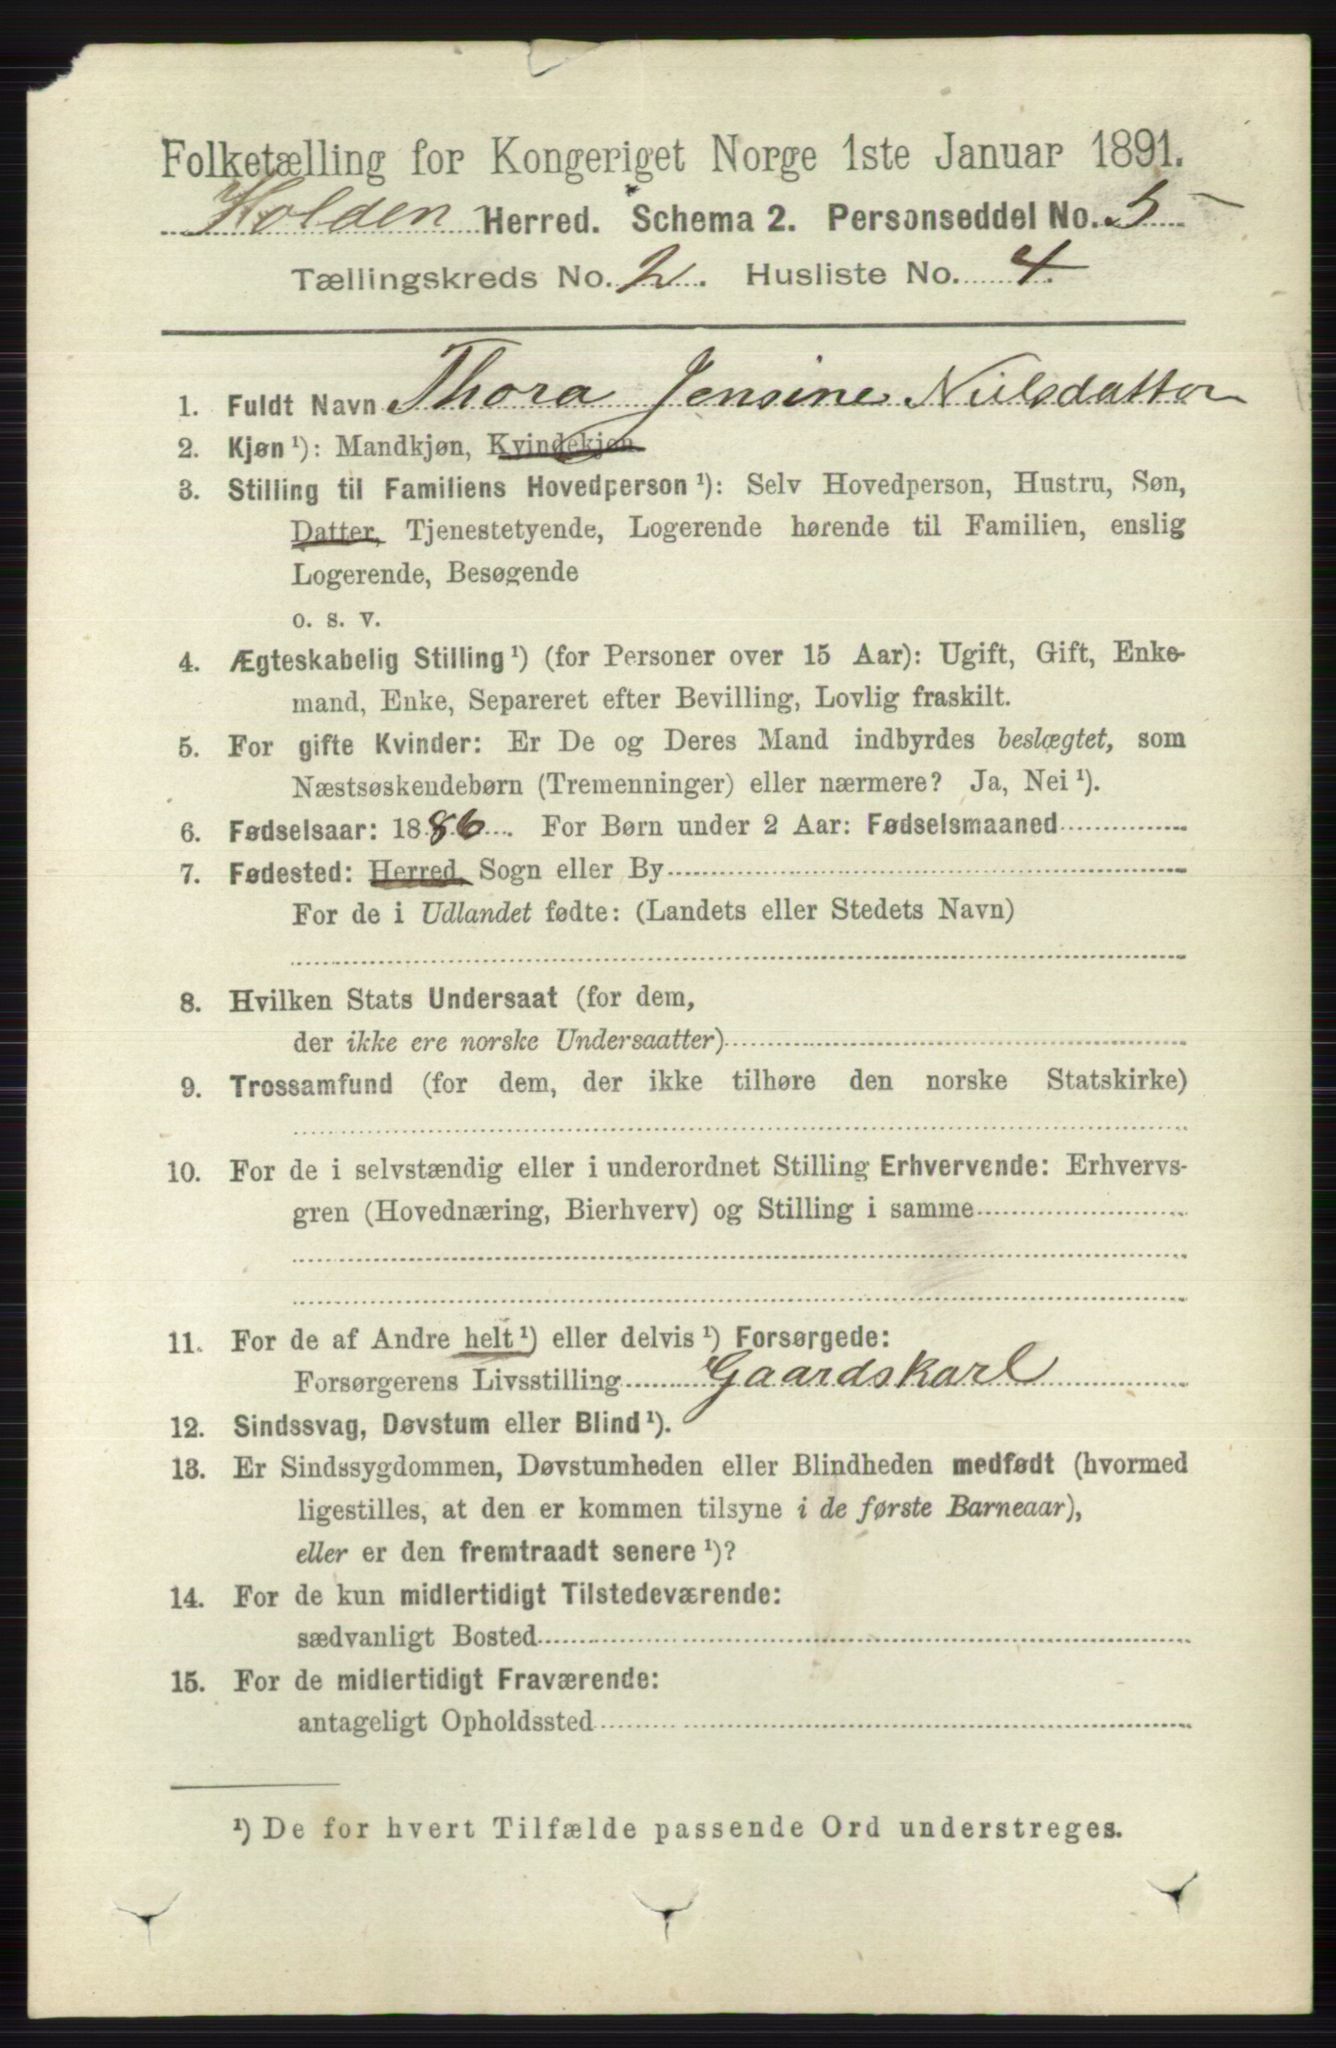 Folketælling for Kongeriget Norge 1ste Januar 1891.
Holden Herred. Schema 2. Personseddel No. 5
Tællingskreds No. 2. Husliste No. 4
1. Fuldt Navn Thora Jensine Nielsdatter
2. Kjøn ¹): Mandkjøn, Kvindekjøn
3. Stilling til Familiens Hovedperson ¹): Selv Hovedperson, Hustru, Søn,
Datter, Tjenestetyende, Logerende hørende til Familien, enslig
Logerende, Besøgende
o. s. v.
4. Ægteskabelig Stilling ¹) (for Personer over 15 Aar): Ugift, Gift, Enke-
mand, Enke, Separeret efter Bevilling, Lovlig fraskilt.
5. For gifte Kvinder: Er De og Deres Mand indbyrdes beslægtet, som
Næstsøskendebørn (Tremenninger) eller nærmere? Ja, Nei ¹).
6. Fødselsaar: 1886. For Børn under 2 Aar: Fødselsmaaned
7. Fødested: Herred, Sogn eller By
For de i Udlandet fødte: (Landets eller Stedets Navn)
8. Hvilken Stats Undersaat (for dem,
der ikke ere norske Undersaatter)
9. Trossamfund (for dem, der ikke tilhøre den norske Statskirke)
10. For de i selvstændig eller i underordnet Stilling Erhvervende: Erhvervs-
gren (Hovednæring, Bierhverv) og Stilling i samme
11. For de af Andre helt ¹) eller delvis ¹) Forsørgede:
Forsørgerens Livsstilling Gaardskarl
12. Sindssvag, Døvstum eller Blind ¹).
13. Er Sindssygdommen, Døvstumheden eller Blindheden medfødt (hvormed
ligestilles, at den er kommen tilsyne i de første Barneaar),
eller er den fremtraadt senere ¹)?
14. For de kun midlertidigt Tilstedeværende:
sædvanligt Bosted
15. For de midlertidigt Fraværende:
antageligt Opholdssted
¹) De for hvert Tilfælde passende Ord understreges.